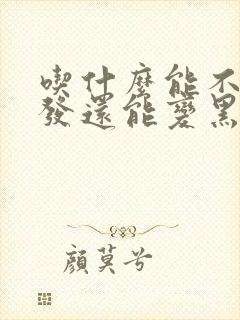 喫什麼能不
發還能變黑
顏莫兮